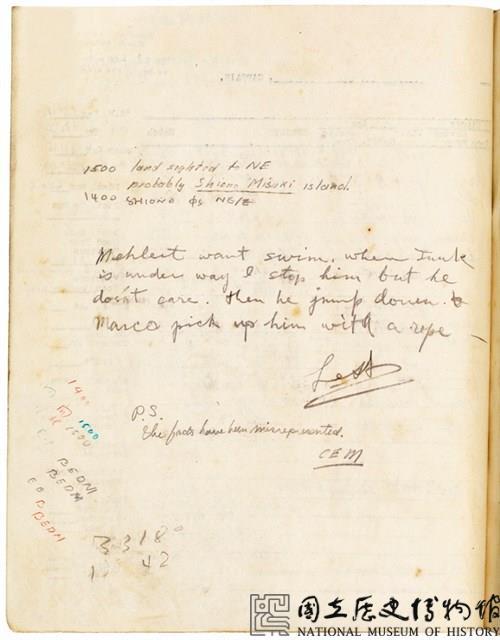 CAPTAIN.
1500 land sighted to NE
probably Shiono Misaki island.
1400 SHIONO φs NE/E
Mehlert want swim, when Junk
is under way I stop him but he
dosn't care. then he jump down.
Marco pick up him with a rope –
P.S.
the facts have been misrepresented.
CEM
1400
1500
1500
BEDNI
BEDM
BEDM
3318°
42
國立歷史博物館
NATIONAL MUSEUM OF HISTORY